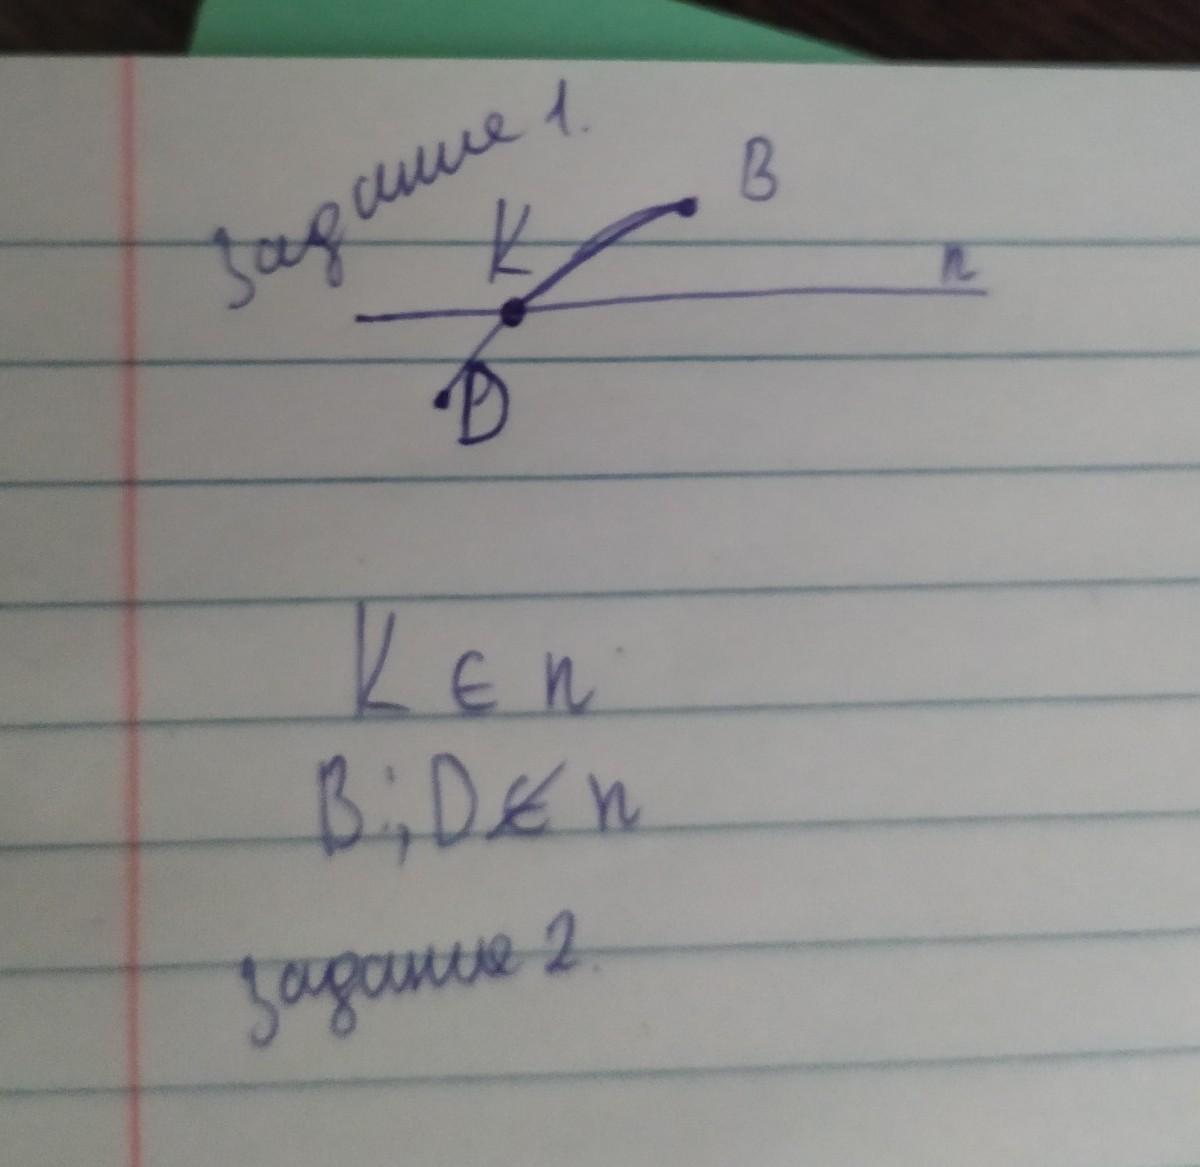 Задание 1.
B
K
n
D
K ∈ n
B ; D ∉ n
Задание 2.